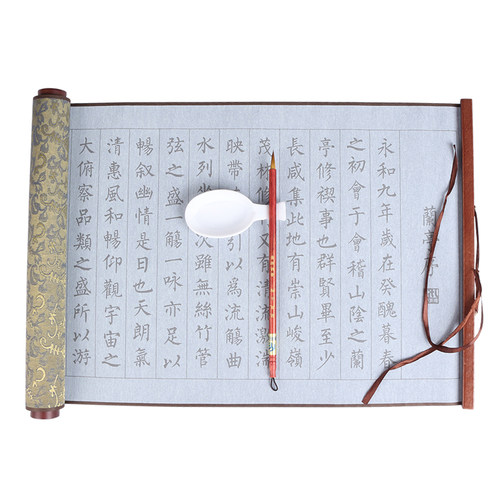 蘭亭序
永和九年歲在癸醜暮春
之初會于會稽山陰之蘭
亭修禊事也群賢畢至少
長咸集此地有崇山峻嶺
茂林修又有清流激湍
映帶引以為流觴曲
水列坐次雖無絲竹管
弦之盛一觴一咏亦足以
暢叙幽情是日也天朗氣
清惠風和暢仰觀宇宙之
大俯察品類之盛所以游